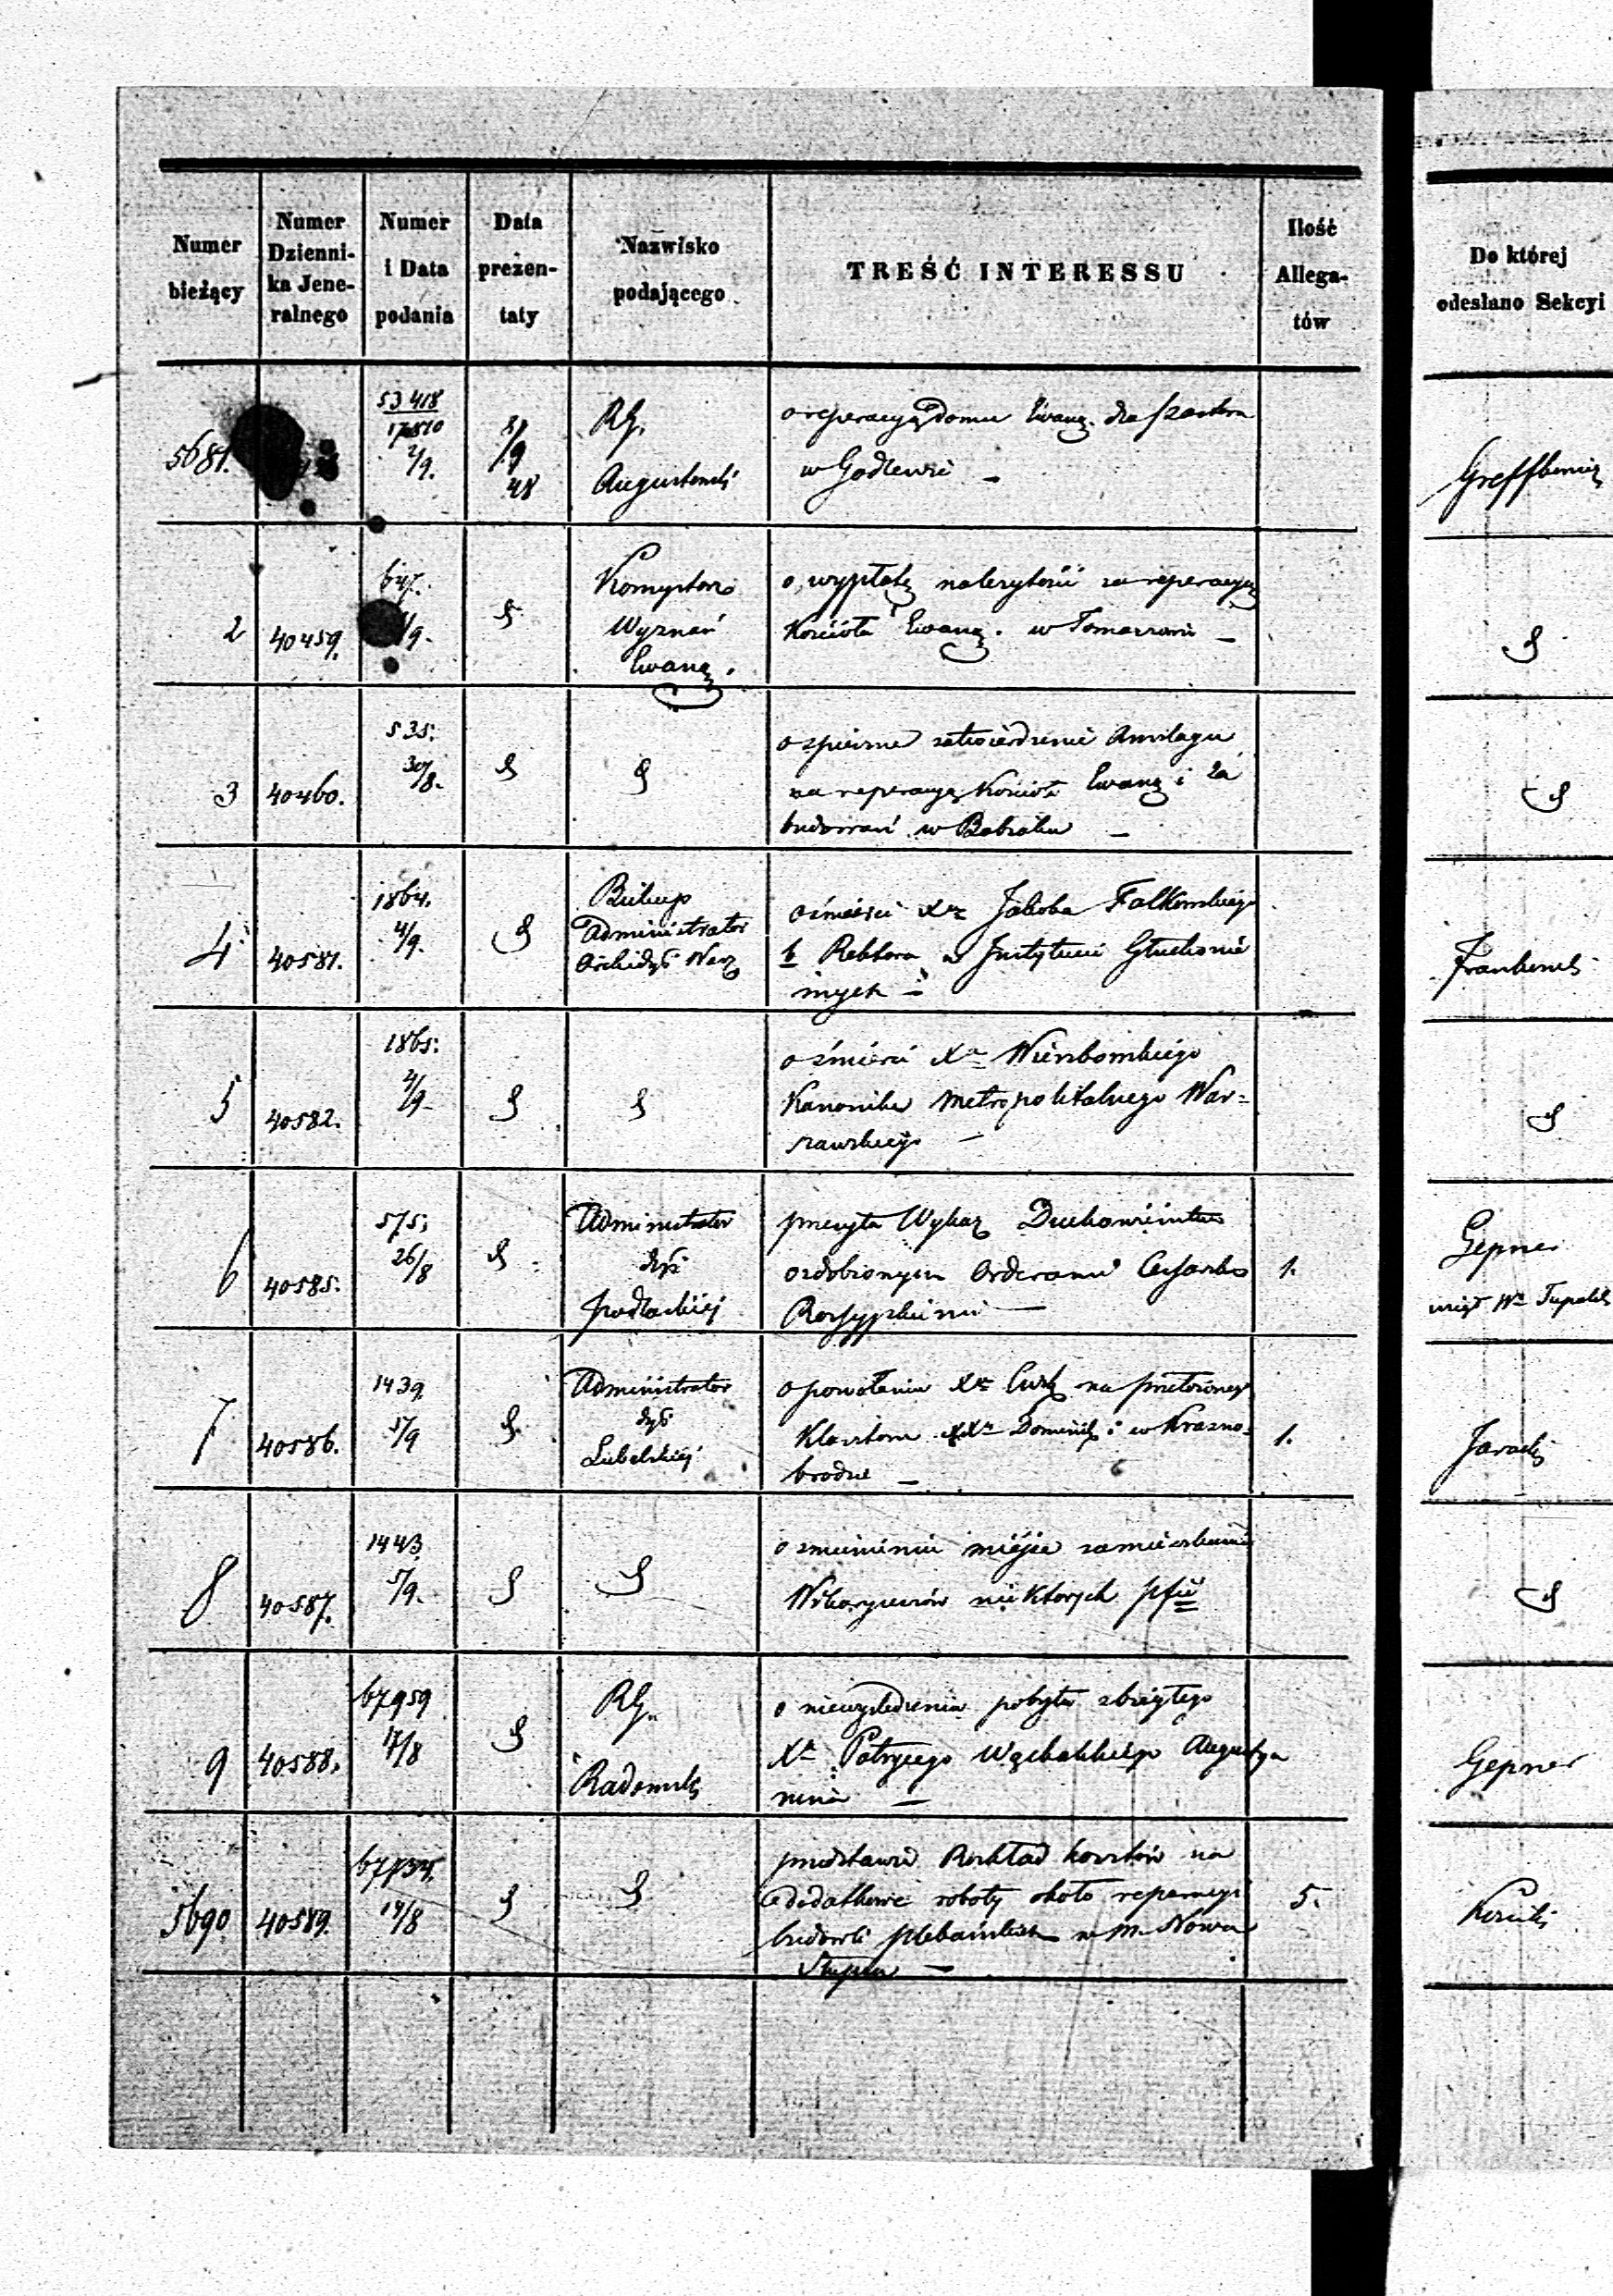 Numer bieżący
Numer Dzienni-
ka Jene-
ralnego
Numer i Data podania
Data prezen-
taty
Nazwisko podającego
TREŚĆ INTERESSU
Ilość Allega-
tów
Do której
odesłano Sekcyi
5681.
53418
17810
2/9.
8/9
48
RG.
Augustowski
o reperacyą Domu Ewang. dla Pastora
w Godlewie –
2
40459.
647.
/9.
Konsystorz
Wyznań
Ewang.
o wypłatę należytości za reperacyą
Kościoła Ewang. w Tomaszowie –
3
40460.
535.
30/8.
o spieszne zatwierdzenie Anszlagu
na reperacyą Kościoła Ewang i Za
budowań w Babiaku –
4.
40581.
1864.
4/9.
Biskup
Administrator
Archidyi Warz
o śmierci Xa Jakoba Falkowskiego
b Rektora w Instytucie Głuchonie
mych –
Frankowski
5
40582.
1865.
4/9
o śmierci Xa Wierzbowskiego
Kanonika Metropolitalnego War=
szawskiego –
6
40585.
575.
26/8
Administrator
dyi
podlaskiej
przesyła Wykaz Duchowieństwa
ozdobionych Orderami Cesarsko
Rossyyskiemi –
1.
Gepner
7
40586.
1439.
5/9
Administrator
dyi
Lubelskiej
o powołaniu Xa na przełożonego
Klasztoru XXa Dominik: w Krasno-
brodzie –
1.
8
40587.
1443.
5/9.
o zmienieniu miejsc zamieszkania
Wikaryuszów niektorych pfii
9
40588.
67959
17/8
RG.
Radomski
o niewyśledzeniu pobytu zbiegłego
Xa Patrycego Augustya
nina –
Gepner
5690.
40589.
19/8
przedstawia Rozkład kosztów na
dodatkowe roboty około reperacyi
budowli plebańskich w m. Nowa
Słupia –
5.